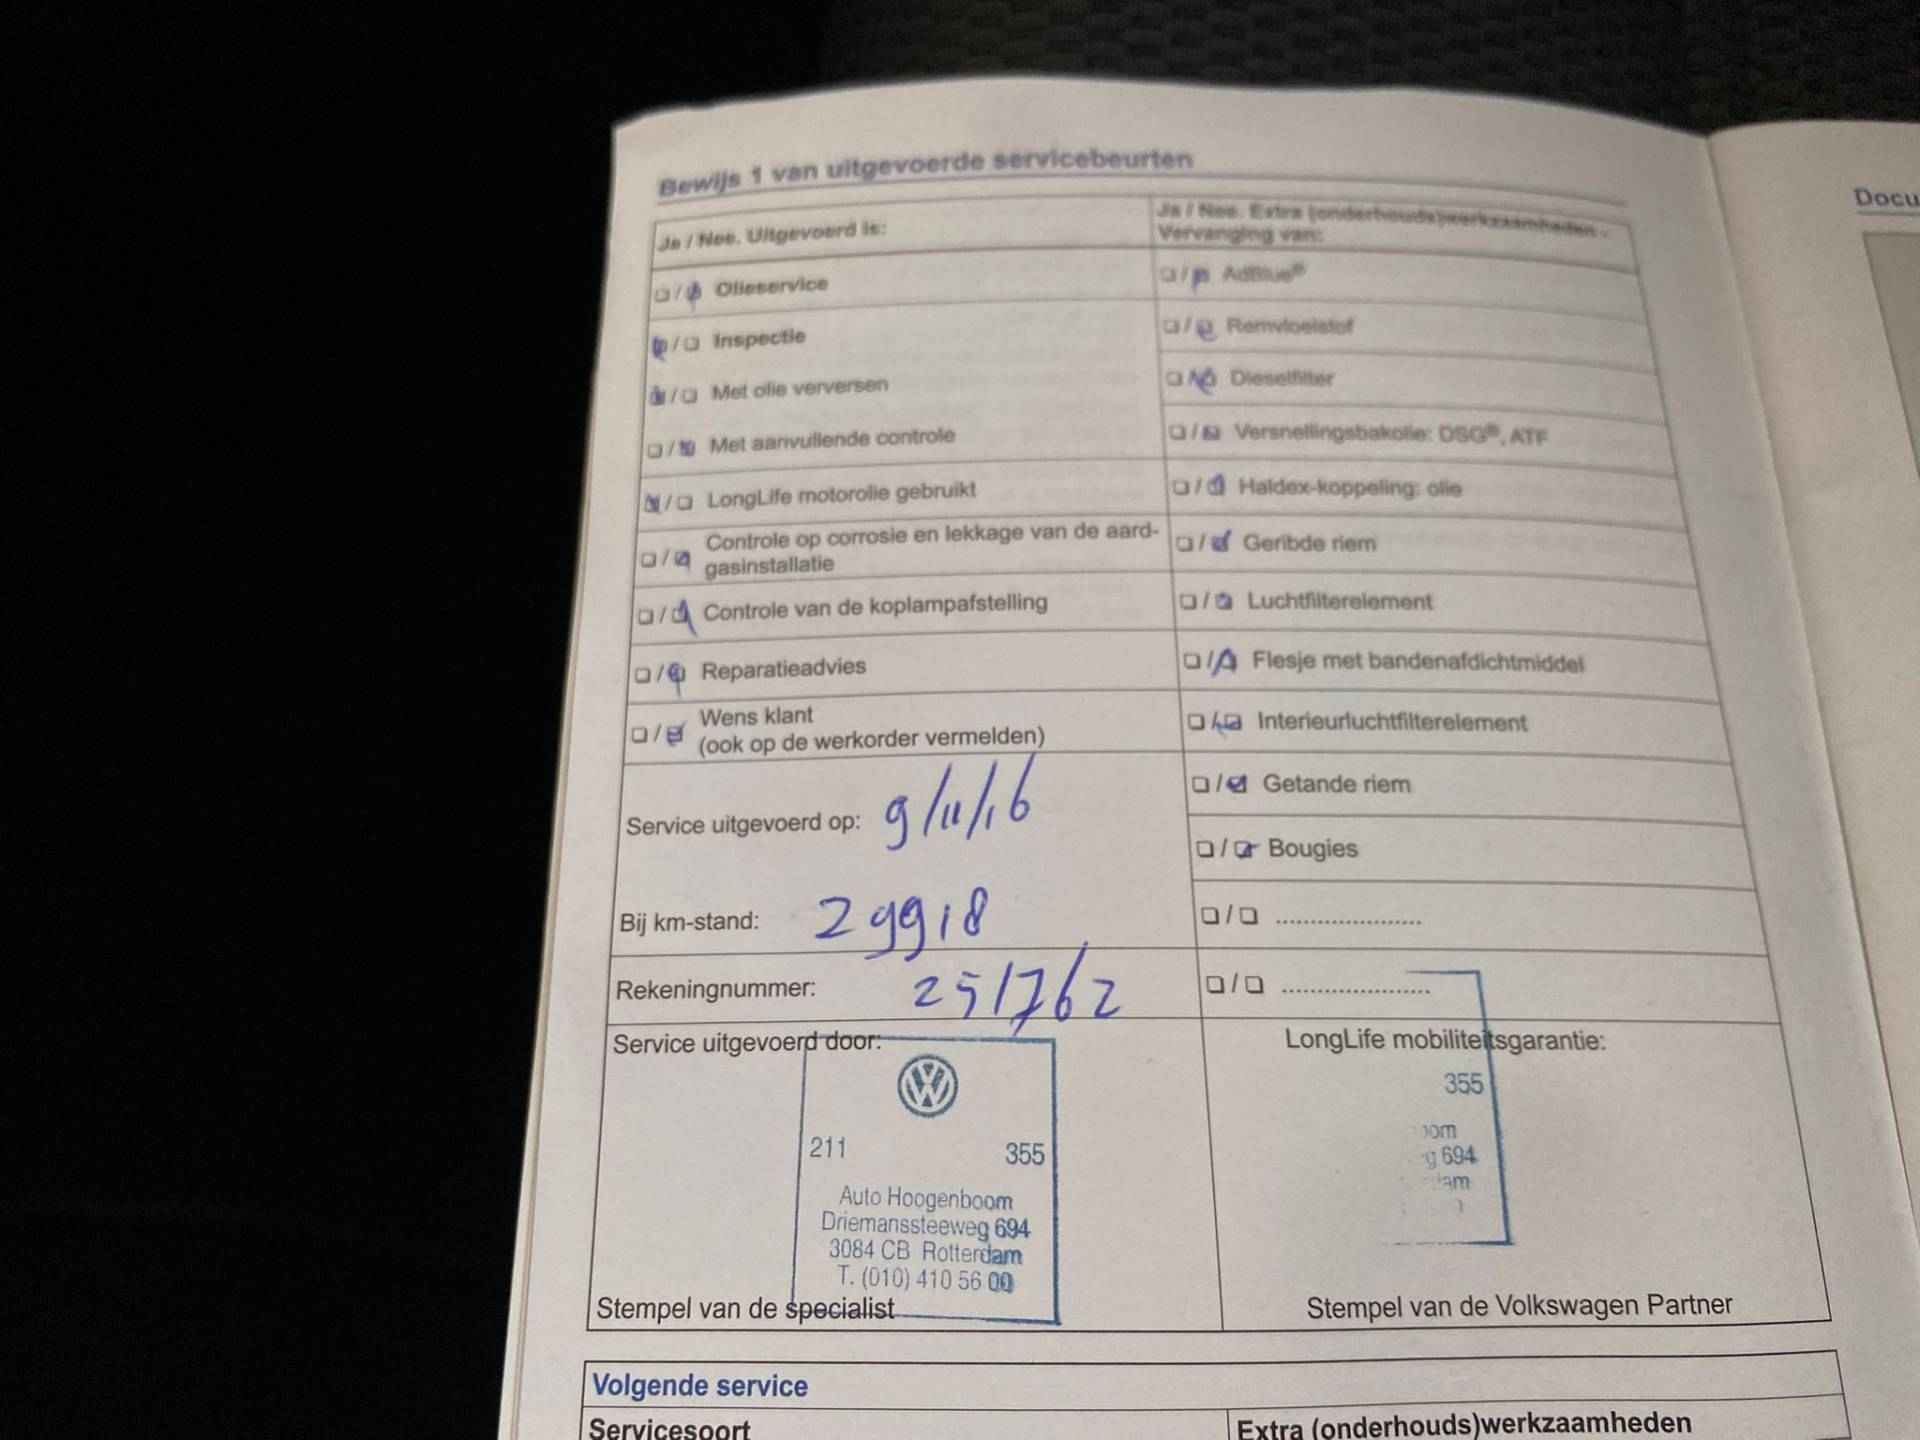 Bewijs 1 van uitgevoerde servicebeurten
Ja / Nee. Uitgevoerd is:
☐/☑ Olieservice
☑/☐ Inspectie
☑/☐ Met olie verversen
☐/☑ Met aanvullende controle
☑/☐ LongLife motorolie gebruikt
☐/☑ Controle op corrosie en lekkage van de aard-
gasinstallatie
☐/☑ Controle van de koplampafstelling
☐/☑ Reparatieadvies
☐/☑ Wens klant
(ook op de werkorder vermelden)
Service uitgevoerd op: 9/11/16
Bij km-stand: 29918
Rekeningnummer: 251762
Ja / Nee. Extra (onderhouds)werkzaamheden -
Vervanging van:
☐/☑ AdBlue®
☐/☑ Remvloeistof
☐/☑ Dieselfilter
☐/☑ Versnellingsbakolie: DSG®, ATF
☐/☑ Haldex-koppeling: olie
☐/☑ Geribde riem
☐/☑ Luchtfilterelement
☐/☑ Flesje met bandenafdichtmiddel
☐/☑ Interieurluchtfilterelement
☐/☑ Getande riem
☐/☑ Bougies
☐/☐ ......................
☐/☐ ......................
Service uitgevoerd door:
211 355
Auto Hoogenboom
Driemanssteeweg 694
3084 CB Rotterdam
T. (010) 410 56 00
Stempel van de specialist
LongLife mobiliteitsgarantie:
355
oom
g 694
dam
Stempel van de Volkswagen Partner
Volgende service
Servicesoort
Extra (onderhouds)werkzaamheden
Docu